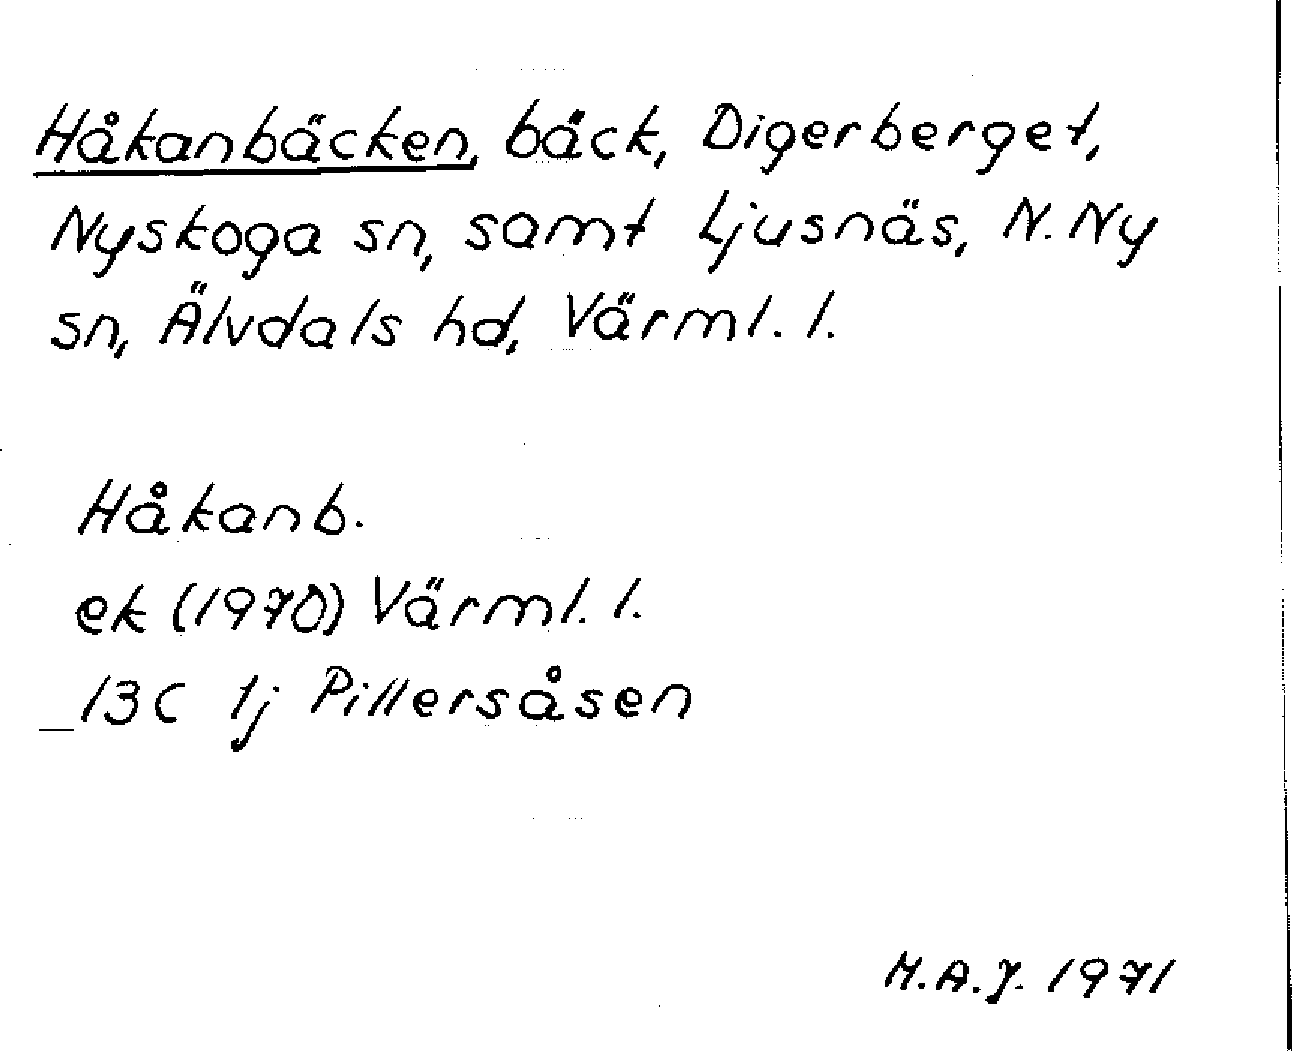 Håkanbäcken, bäck, Digerberget,
Nyskoga sn, samt Ljusnäs, N. Ny
sn, Älvdals hd, Värml. l.
Håkanb.
ek (1970) Värml. l.
13C 1j Pillersåsen
M.A.J. 1971